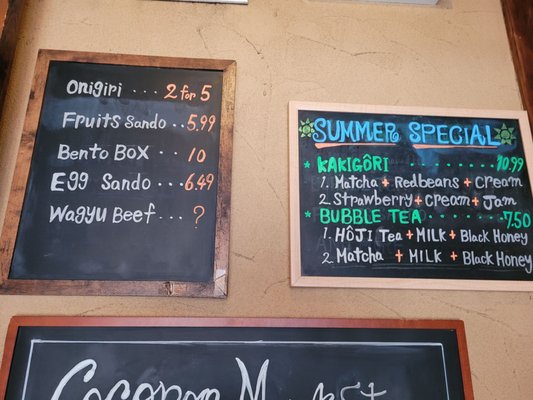 Onigiri ... 2 for 5
Fruits Sando .. 5.99
Bento Box .. 10
Egg Sando ... 6.49
Wagyu Beef ... ?
SUMMER SPECIAL
* KAKIGÔRI ........ 10.99
1. Matcha + Redbeans + Cream
2. Strawberry + Cream + Jam
* BUBBLE TEA ...... 7.50
1. HÔJI Tea + MILK + Black Honey
2. Matcha + MILK + Black Honey